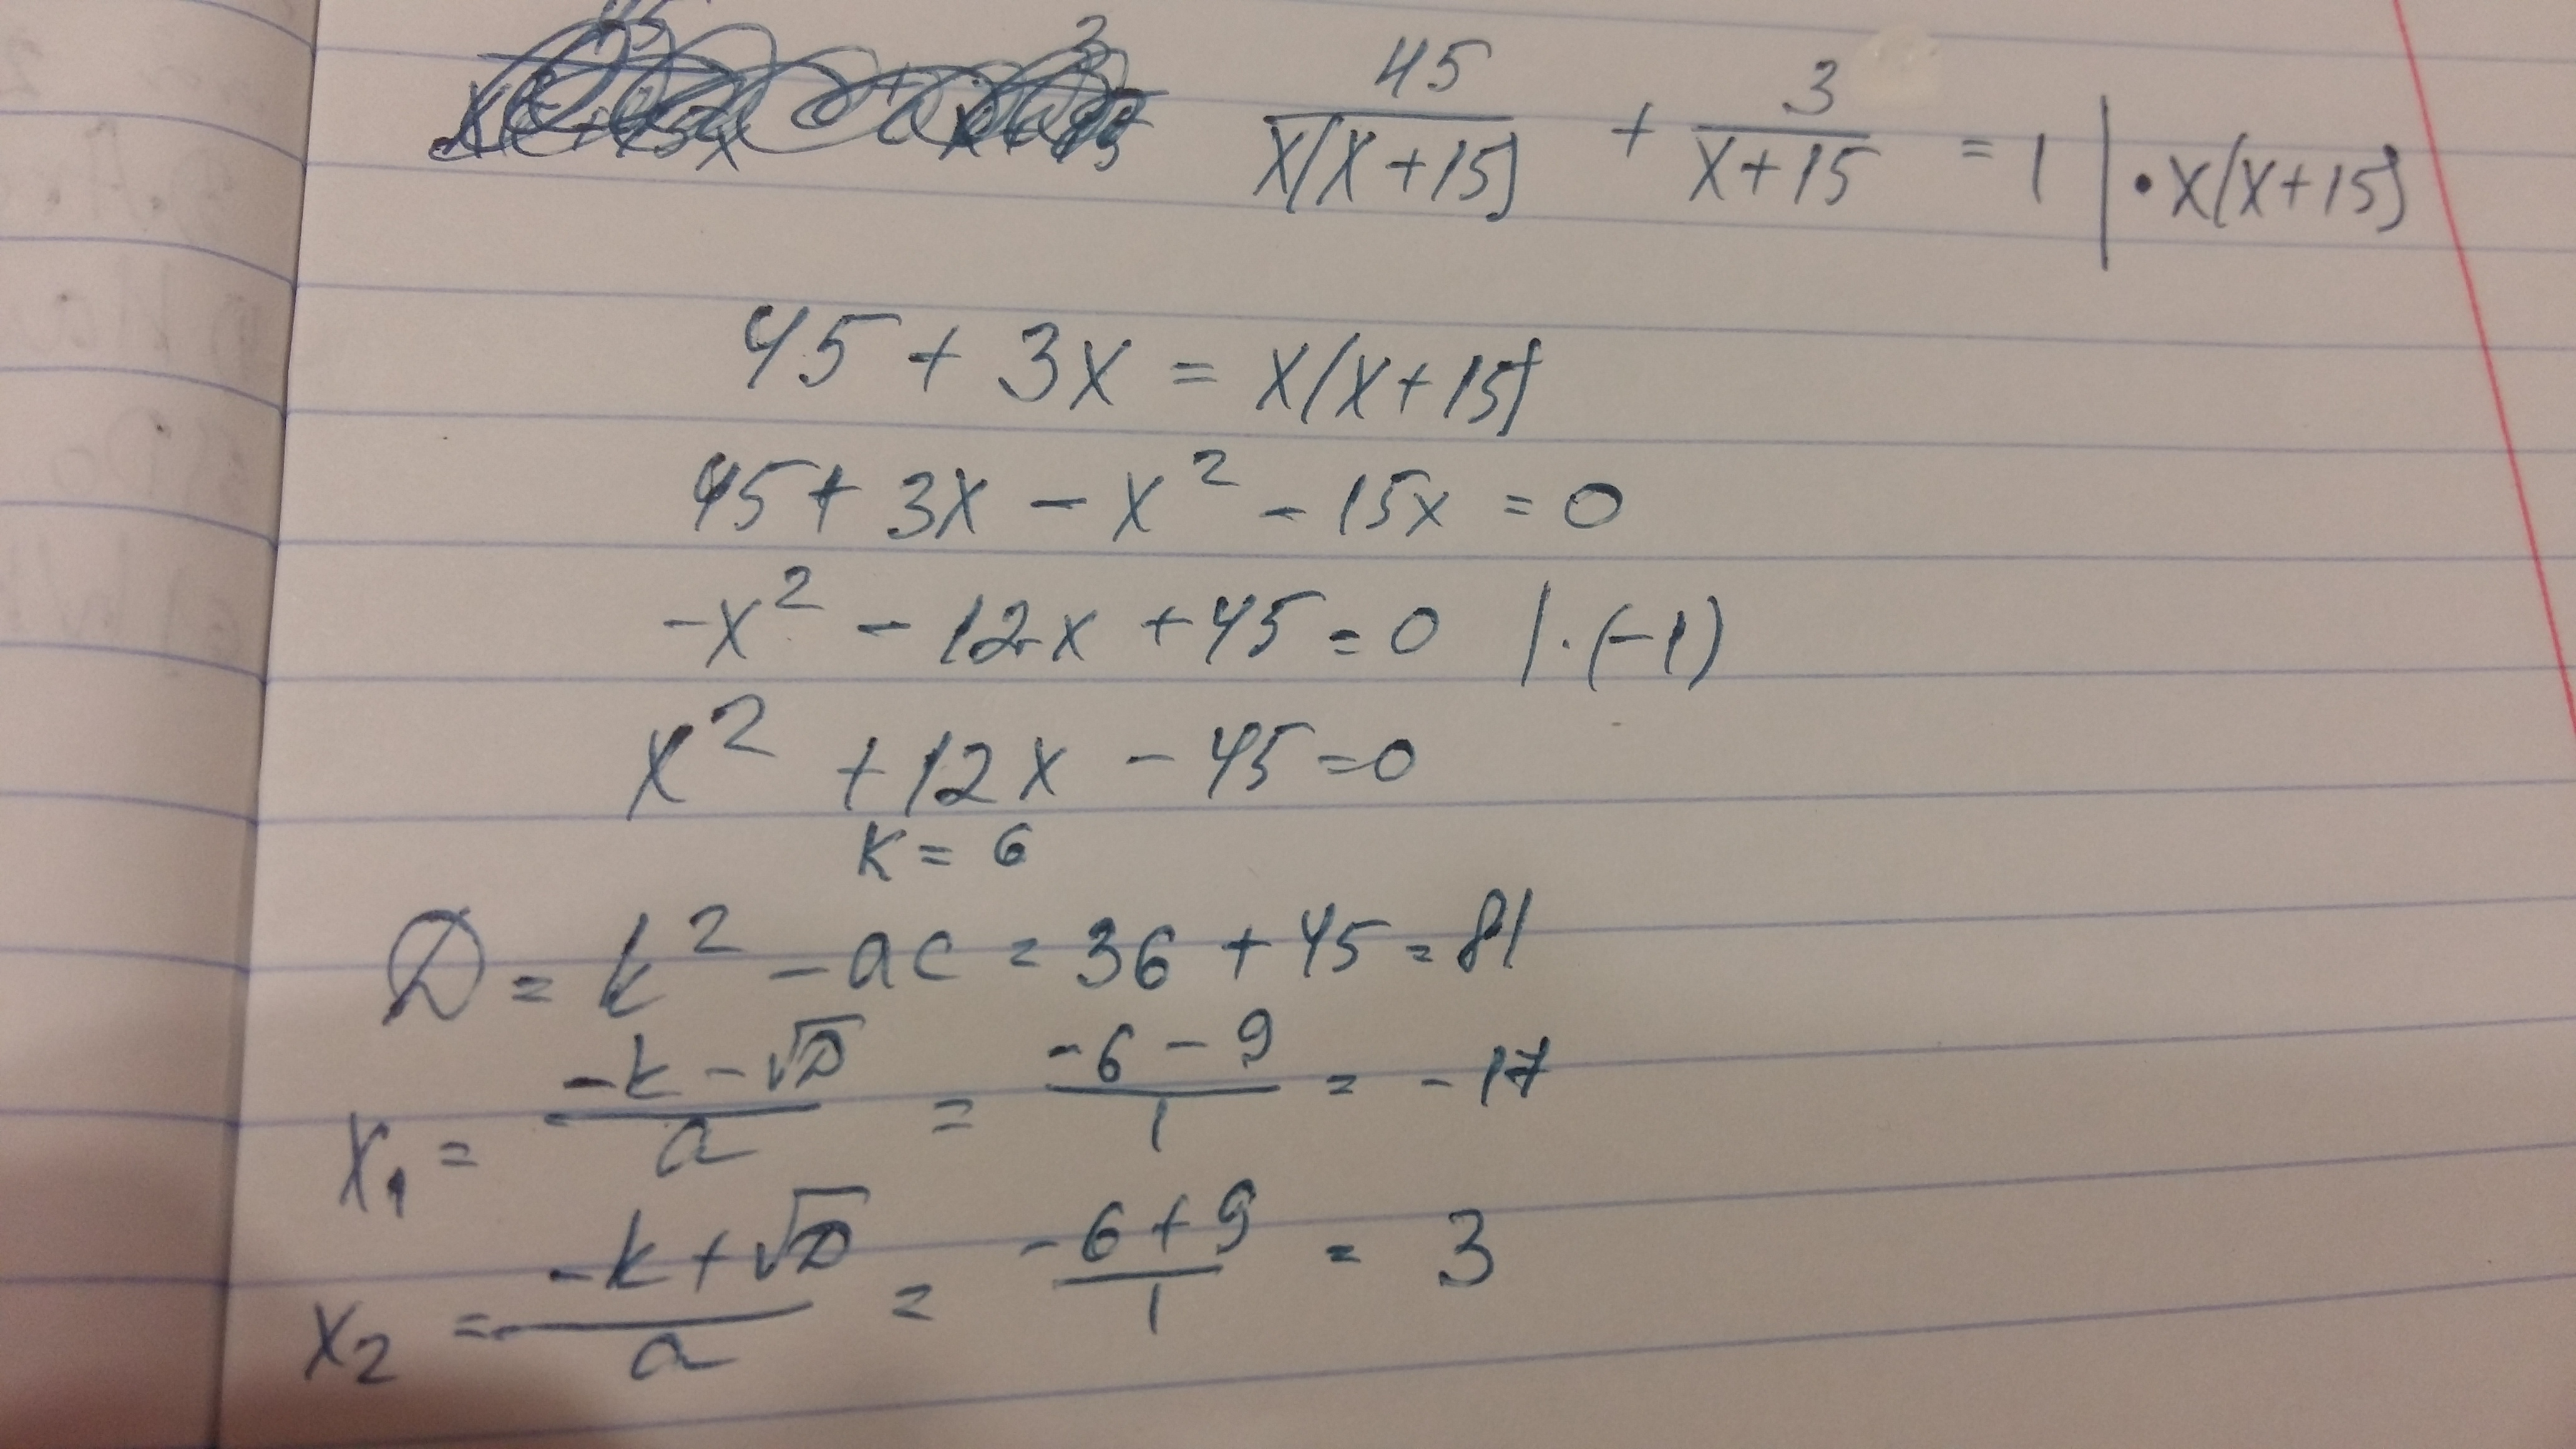 45/(x(x+15)) + 3/(x+15) = 1 | · x(x+15)
45 + 3x = x(x+15)
45 + 3x - x² - 15x = 0
-x² - 12x + 45 = 0 | · (-1)
x² + 12x - 45 = 0
k = 6
D = k² - ac = 36 + 45 = 81
x₁ = (-k - √D)/a = (-6 - 9)/1 = -17
x₂ = (-k + √D)/a = (-6 + 9)/1 = 3